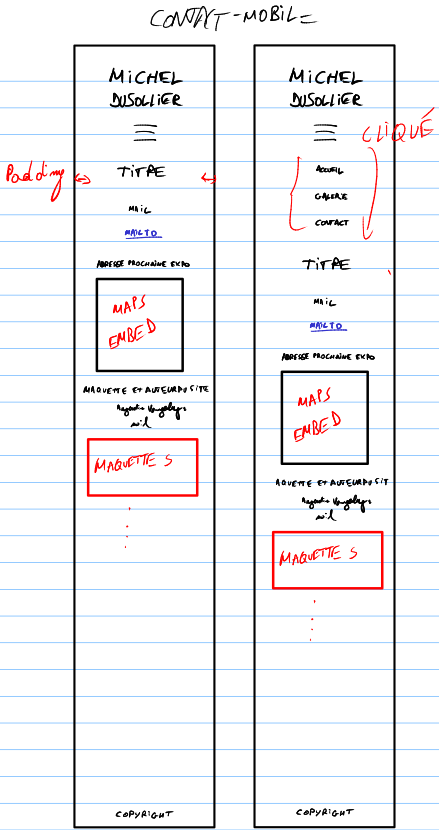 CONTACT-MOBILE
MICHEL
DUSOLLIER
Padding
TITRE
MAIL
MAILTO
ADRESSE PROCHAINE EXPO
MAPS
EMBED
MAQUETTE ET AUTEUR DU SITE
MAQUETTES
COPYRIGHT
MICHEL
DUSOLLIER
CLIQUÉ
ACCUEIL
GALERIE
CONTACT
TITRE
MAIL
MAILTO
ADRESSE PROCHAINE EXPO
MAPS
EMBED
AQUETTE ET AUTEUR DU SIT
MAQUETTES
COPYRIGHT